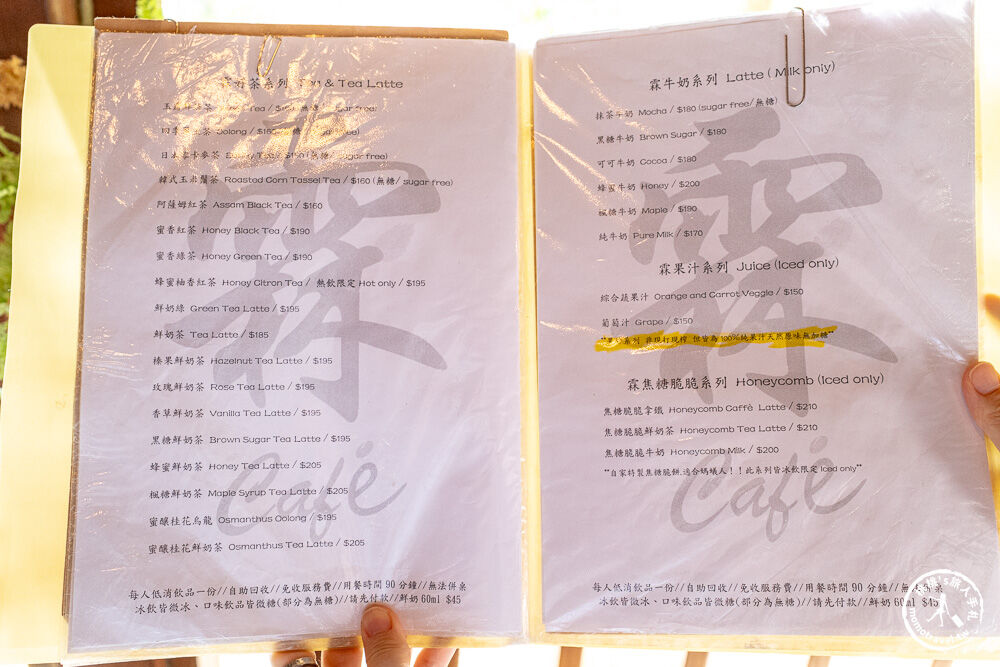 茶系列 & Tea Latte
Tea / $160 (無糖/ sugar free)
Oolong / $165 (無糖/ sugar free)
日本 麥茶 Tea / $150 (無糖/ sugar free)
韓式玉米鬚茶 Roasted Corn Tassel Tea / $160 (無糖/ sugar free)
阿薩姆紅茶 Assam Black Tea / $160
蜜香紅茶 Honey Black Tea / $190
蜜香綠茶 Honey Green Tea / $190
蜂蜜柚香紅茶 Honey Citron Tea / 熱飲限定 Hot only / $195
鮮奶綠 Green Tea Latte / $195
鮮奶茶 Tea Latte / $185
榛果鮮奶茶 Hazelnut Tea Latte / $195
玫瑰鮮奶茶 Rose Tea Latte / $195
香草鮮奶茶 Vanilla Tea Latte / $195
黑糖鮮奶茶 Brown Sugar Tea Latte / $195
蜂蜜鮮奶茶 Honey Tea Latte / $205
楓糖鮮奶茶 Maple Syrup Tea Latte / $205
蜜釀桂花烏龍 Osmanthus Oolong / $195
蜜釀桂花鮮奶茶 Osmanthus Tea Latte / $205
霖
Café
每人低消飲品一份//自助回收//免收服務費//用餐時間 90 分鐘//無法併桌
冰飲皆微冰、口味飲品皆微糖(部分為無糖)//請先付款//鮮奶 60ml $45
霖牛奶系列 Latte ( Milk only)
抹茶牛奶 Mocha / $180 (sugar free/無糖)
黑糖牛奶 Brown Sugar / $180
可可牛奶 Cocoa / $180
蜂蜜牛奶 Honey / $200
楓糖牛奶 Maple / $190
純牛奶 Pure Milk / $170
霖果汁系列 Juice (Iced only)
綜合蔬果汁 Orange and Carrot Veggie / $150
葡萄汁 Grape / $150
**果汁系列 非現打現榨 但皆為 100%純果汁天然原味無加糖**
霖焦糖脆脆系列 Honeycomb (Iced only)
焦糖脆脆拿鐵 Honeycomb Caffè Latte / $210
焦糖脆脆鮮奶茶 Honeycomb Tea Latte / $210
焦糖脆脆牛奶 Honeycomb Milk / $200
**自家特製焦糖脆餅,適合螞蟻人！！此系列皆冰飲限定 Iced only**
霖
Café
每人低消飲品一份//自助回收//免收服務費//用餐時間 90 分鐘//無法併桌
冰飲皆微冰、口味飲品皆微糖(部分為無糖)//請先付款//鮮奶 60ml $45